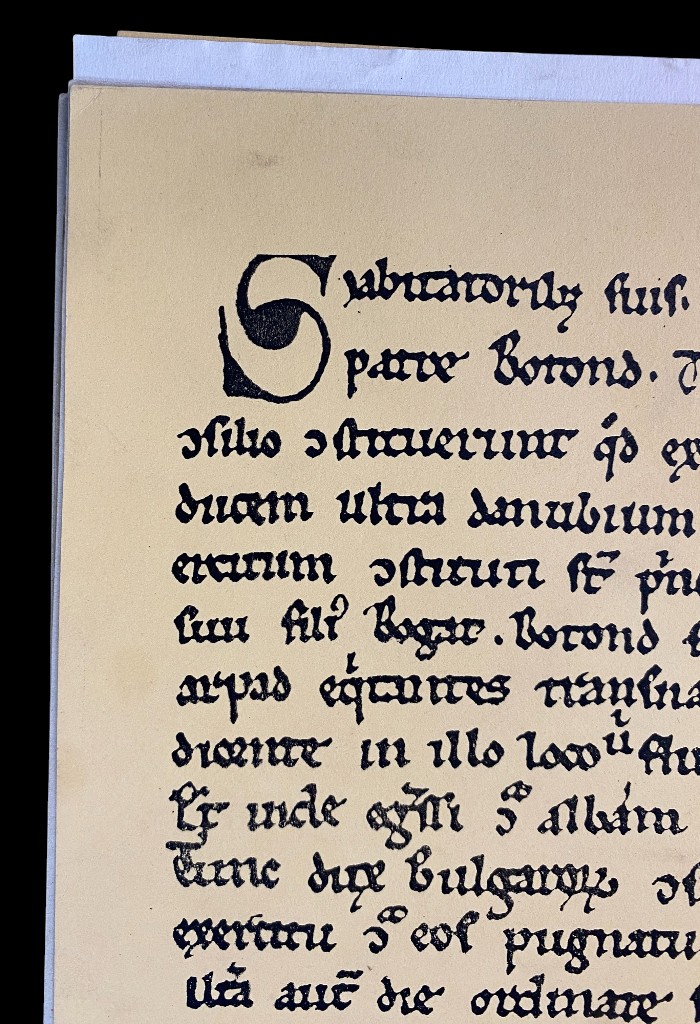 S habitatoribꝫ suis.
patre Botond.
ↄsilio ↄstituerunt qd̕ ex
ducem ultra danubium
exercitum ↄstituti st̄
fuit filiꝰ Bogat. Botond
arpad eqͥtantes transna
dicente in illo loco ů flu
Et inde eg̃ssi ↄͣ albam
Tunc dux bulgaroꝝ ↄs
exercitu ↄͣ eos pugnatu
Altͣa aut̄ die ordinate